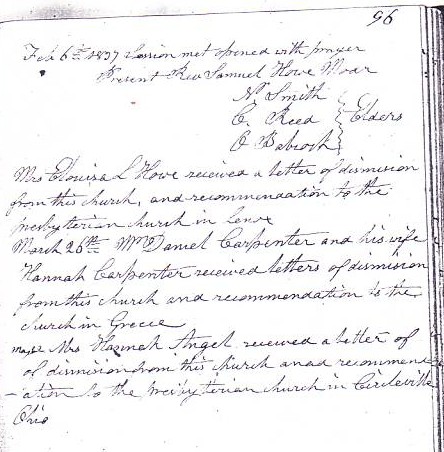 96
Feb 6th 1837 Session met opened with prayer
Present Rev Samuel Howe Moar
N Smith
C. Reed } Elders
O Babcock
Mrs Elouisa L Howe received a letter of dismision
from this church, and recommendation to the
presbyterian church in Lenox
March 26th Mr Daniel Carpenter and his wife
Hannah Carpenter received letters of dismision
from this church and recommendation to the
church in Greece
may 2 Mrs Hannah Angel received a letter of
of dismision from this church anad recommend
-ation to the presbyterian church in Circleville
Ohio